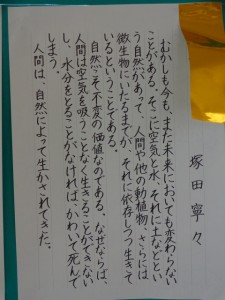 塚田寧々
むかしも今も、また未来においても変わらない
ことがある。そこに空気と水、それに土などとい
う自然があって、人間や他の動植物、さらには
微生物にいたるまでが、それに依存しつつ生きて
いるということである。
自然こそ不変の価値なのである。なぜならば、
人間は空気を吸うことなく生きることができない
し、水分をとることがなければ、かわいて死んで
しまう。
人間は、自然によって生かされてきた。